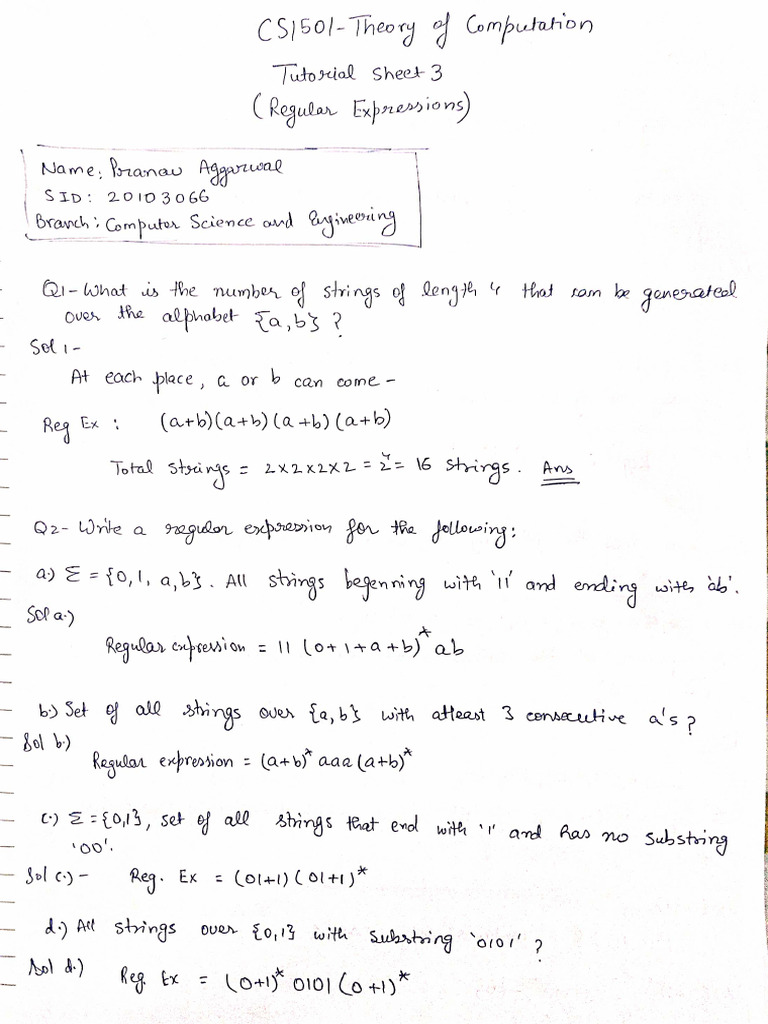 CS1501-Theory of Computation
Tutorial Sheet 3
(Regular Expressions)
Name: Pranav Aggarwal
SID: 20103066
Branch: Computer Science and Engineering
Q1-What is the number of strings of length 4 that can be generated
over the alphabet {a,b} ?
Sol 1-
At each place, a or b can come -
Reg Ex : (a+b)(a+b)(a+b)(a+b)
Total strings = 2×2×2×2 = 2⁴ = 16 strings. Ans
Q2- Write a regular expression for the following:
a.) Σ = {0,1, a,b}. All strings begenning with '11' and ending with 'ab'.
Sol a.)
Regular expression = 11 (0+1+a+b)* ab
b.) Set of all strings over {a,b} with atleast 3 consecutive a's ?
Sol b.)
Regular expression = (a+b)* aaa (a+b)*
c.) Σ = {0,1}, set of all strings that end with '1' and has no substring
'00'.
Sol c.) - Reg. Ex = (01+1) (01+1)*
d.) All strings over {0,1} with substring '0101' ?
Sol d.) Reg. Ex = (0+1)* 0101 (0+1)*